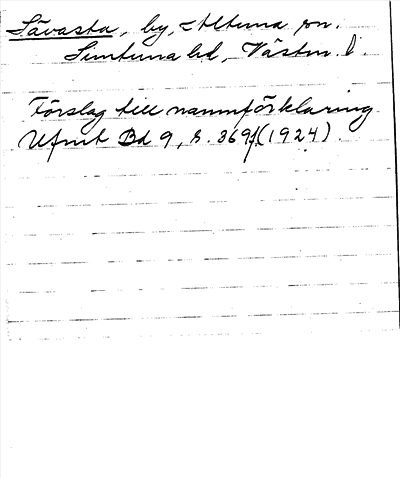 Sävasta, by, Altuna sn.
Simtuna hd, Västm. l.
Förslag till namnförklaring
Ufmt Bd 9, s. 369f (1924).